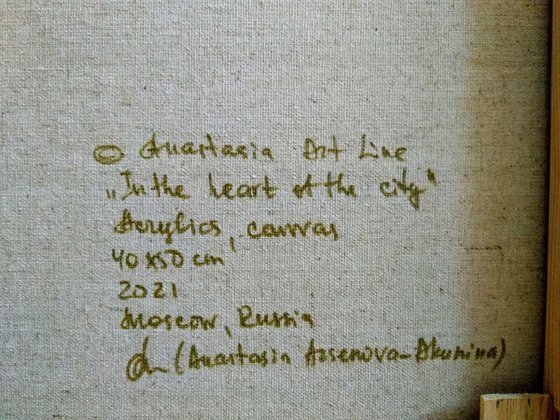 © Anastasia Art Line
„In the heart of the city"
Acrylics, canvas
40x50 cm
2021
Moscow, Russia
(Anastasia Arsenova-Akunina)